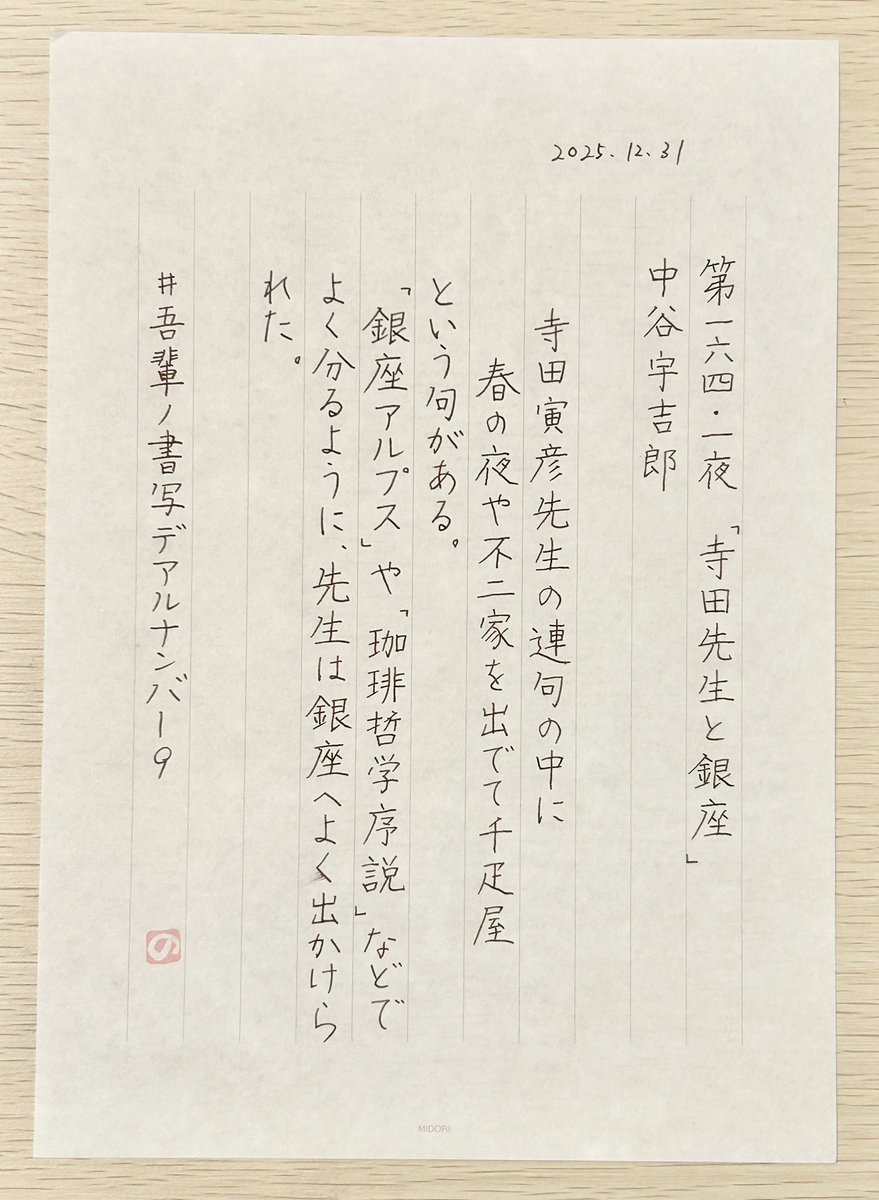 2025.12.31
第一六四・一夜 「寺田先生と銀座」
中谷宇吉郎
寺田寅彦先生の連句の中に
春の夜や不二家を出でて千疋屋
という句がある。
「銀座アルプス」や「珈琲哲学序説」などで
よく分るように、先生は銀座へよく出かけら
れた。
#吾輩ノ書写デアルナンバー9
の
MIDORI